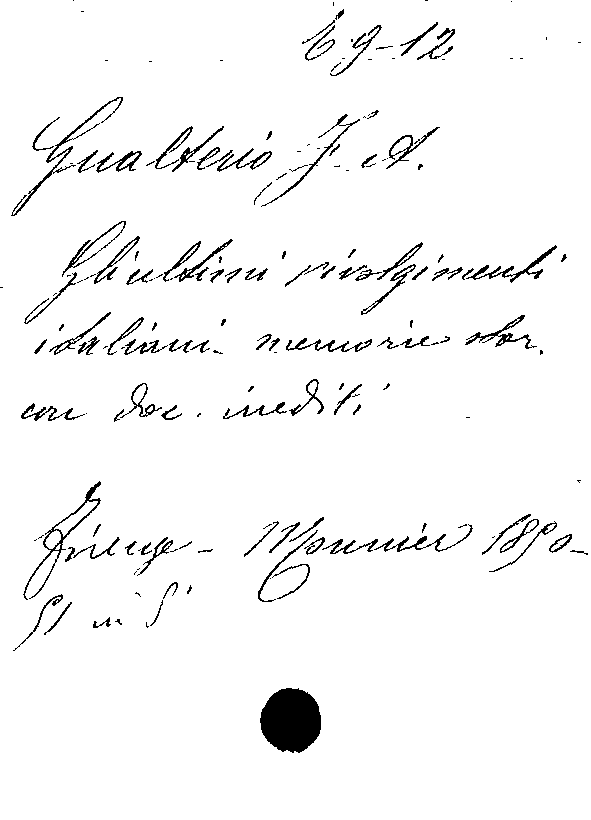 E 9-12
Gualterio F. A.
Gli ultimi rivolgimenti
italiani - memorie stor.
con doc. inediti
Firenze - Monnier 1850-
51 in 8°